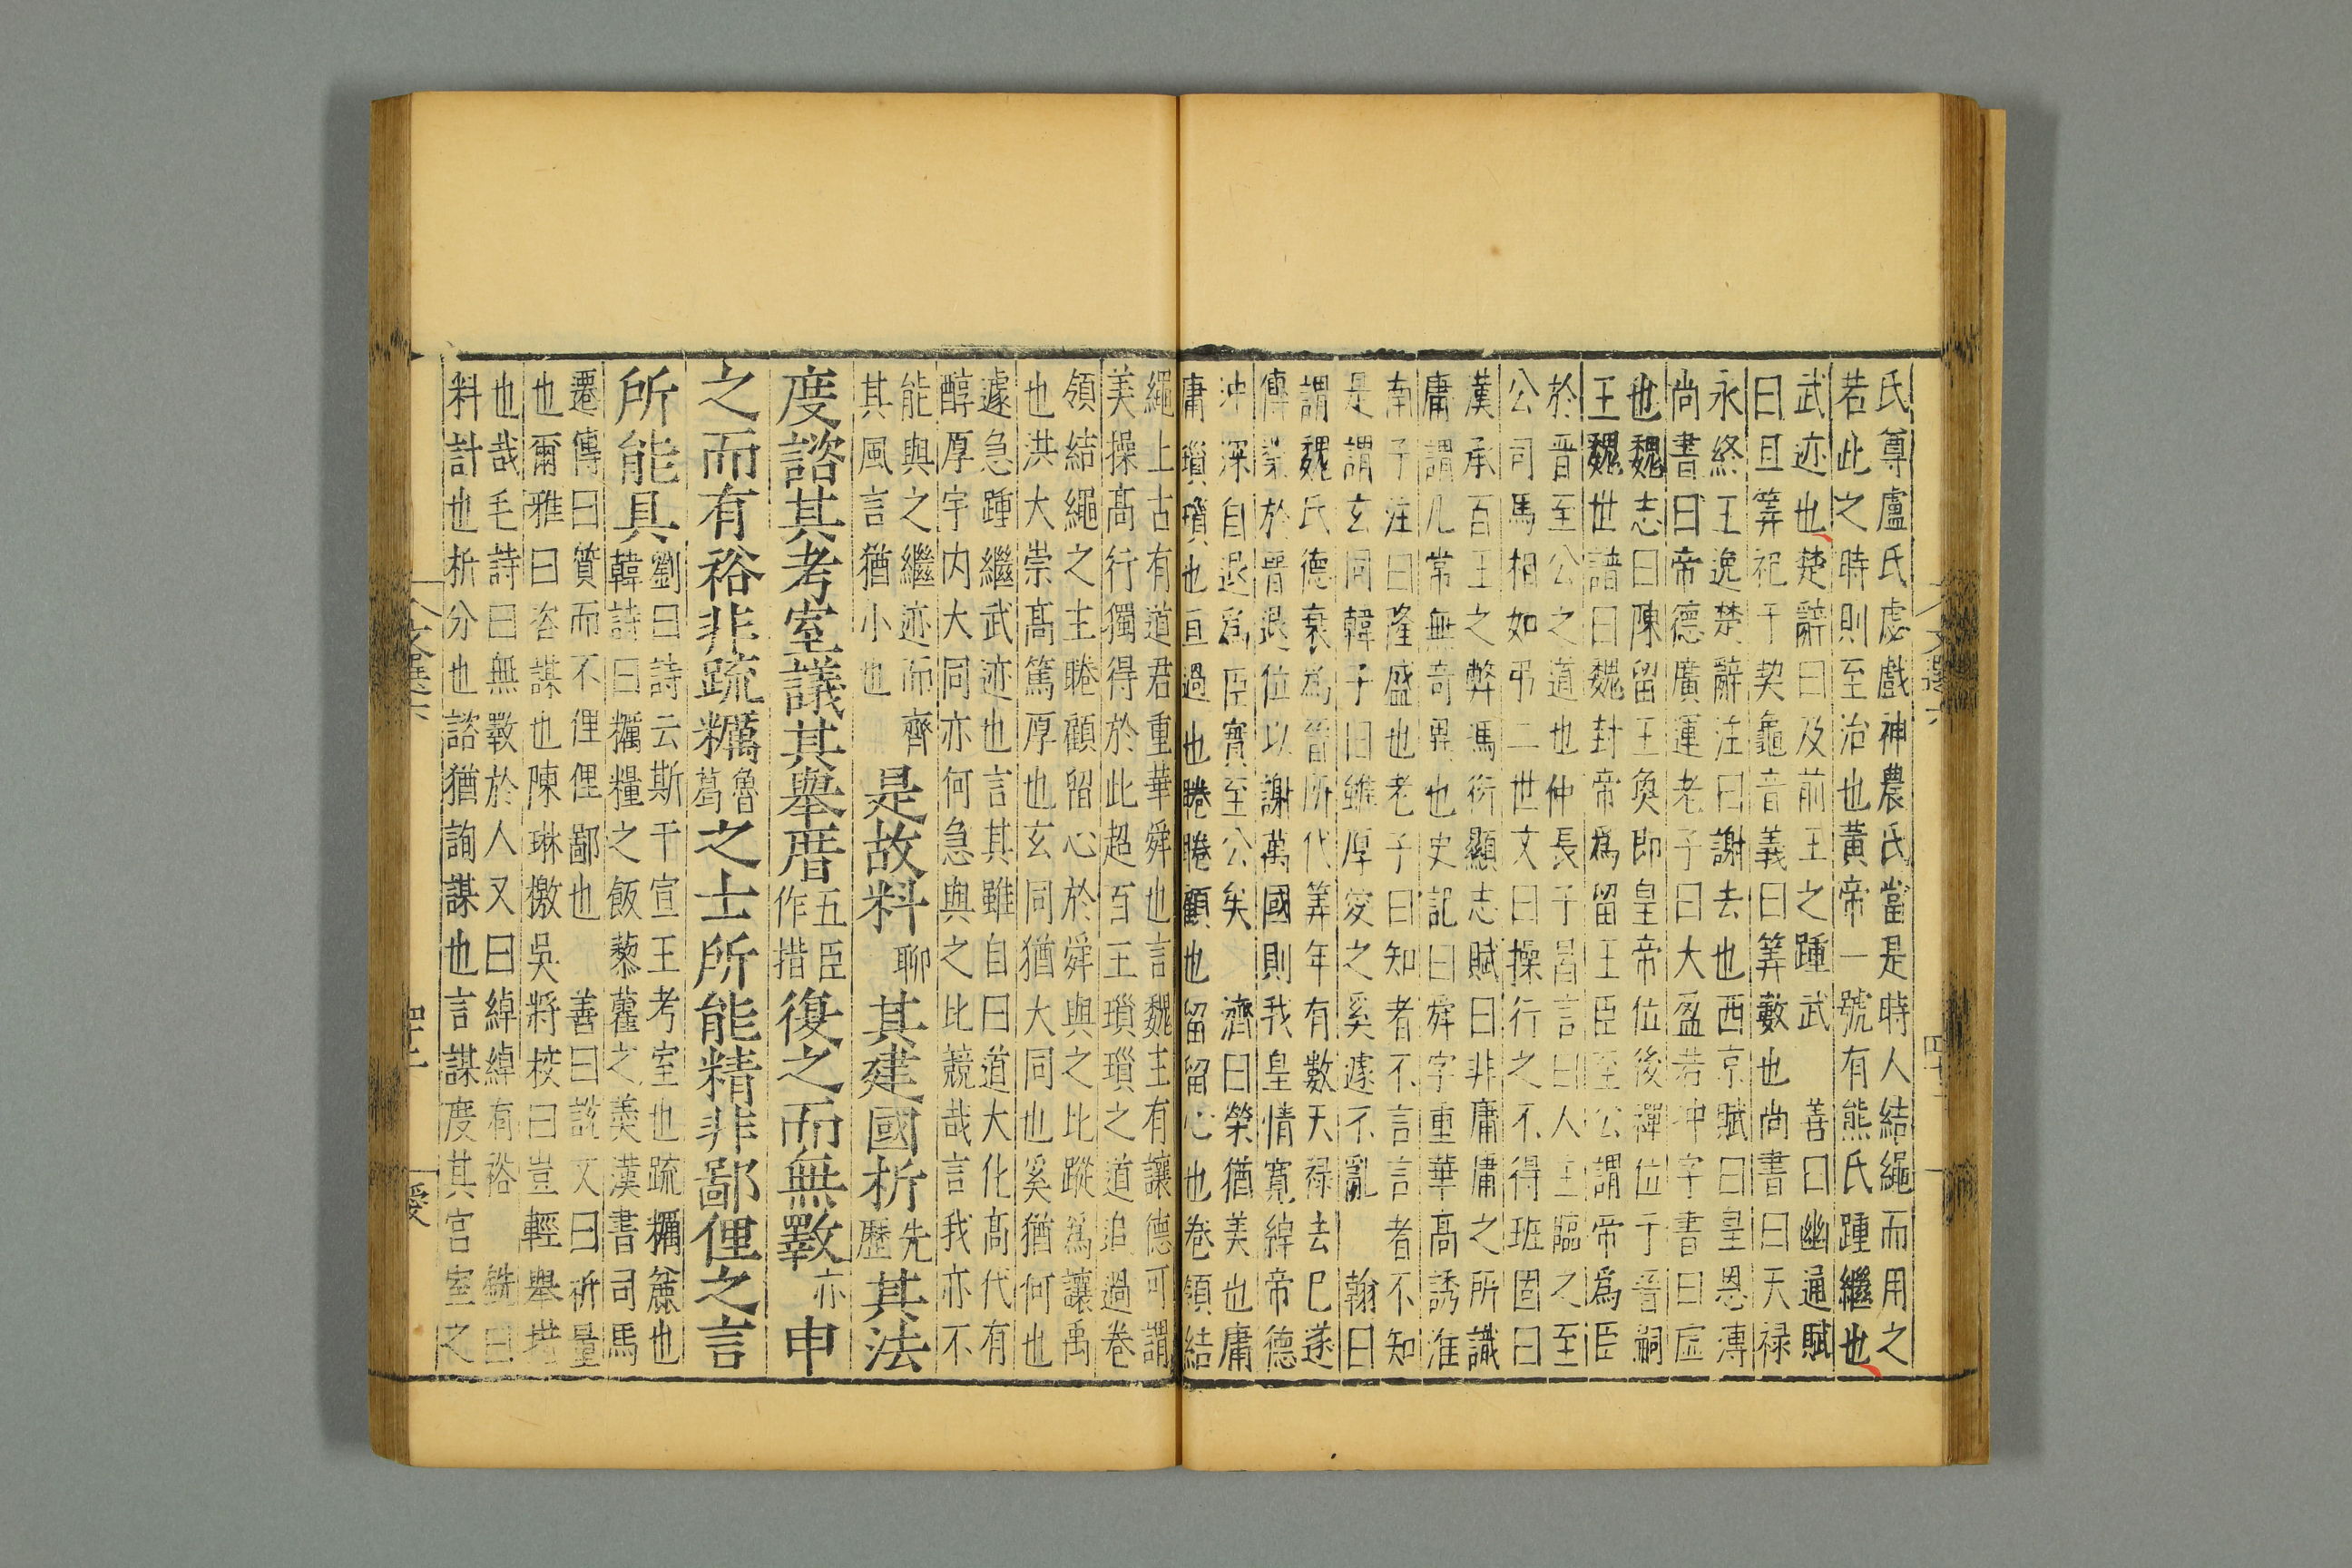 氏尊盧氏虙戲神農氏當是時人結繩而用之
若此之時則至治也黃帝一號有熊氏踵繼也
武迹也楚辭曰及前王之踵武善曰幽通賦
曰且筭祀于契龜音義曰筭數也尚書曰天禄
永終王逸楚辭注曰謝去也西京賦曰皇恩溥
尚書曰帝德廣運老子曰大盈若冲字書曰
也魏志曰陳留王奐即皇帝位後禪位于晉嗣
王魏世譜曰魏封帝爲留王臣至公謂帝爲臣
於晉至公之道也仲長子昌言曰人主臨之至
公司馬相如弔二世文曰操行之不得班固曰
漢承百王之弊馮衍顯志賦曰非庸庸之所識
庸謂凡常無奇異也史記曰舜字重華高誘淮
南子注曰隆盛也老子曰知者不言言者不知
是謂玄同韓子曰雖厚愛之奚遽不亂翰曰
謂魏氏德衰爲晉所代筭年有數天禄去已遂
傳業於晉退位以謝萬國則我皇情寛綽帝德
沖深自退爲臣實至公矣濟曰榮猶美也庸
庸瑣瑣也亘過也睠睠顧也留留心也卷領結
繩上古有道君重華舜也言魏主有讓德可謂
美操高行獨得於此超百王瑣瑣之道追過卷
領結繩之主睠顧留心於舜與之比蹤爲讓禹
也洪大崇高篤厚也玄同猶大同也奚猶何也
遽急踵繼武迹也言其雖自曰道大化高代有
醇厚宇内大同亦何急與之比競哉言我亦不
能與之繼迹而齊
其風言猶小也
是故料聊其建國析先歷其法
度諮其考室議其舉厝五臣作措復之而無斁亦申
之而有裕非疏糲魯葛之士所能精非鄙俚之言
所能具
劉曰詩云斯干宣王考室也疏糲麄也
韓詩曰糲糧之飯藜藿之羹漢書司馬
遷傳曰質而不俚俚鄙也善曰說文曰析量
也爾雅曰咨謀也陳琳檄吳將校曰豈輕舉措
也哉毛詩曰無斁於人又曰綽綽有裕銑曰
料計也析分也諮猶詢謀也言謀度其宫室之